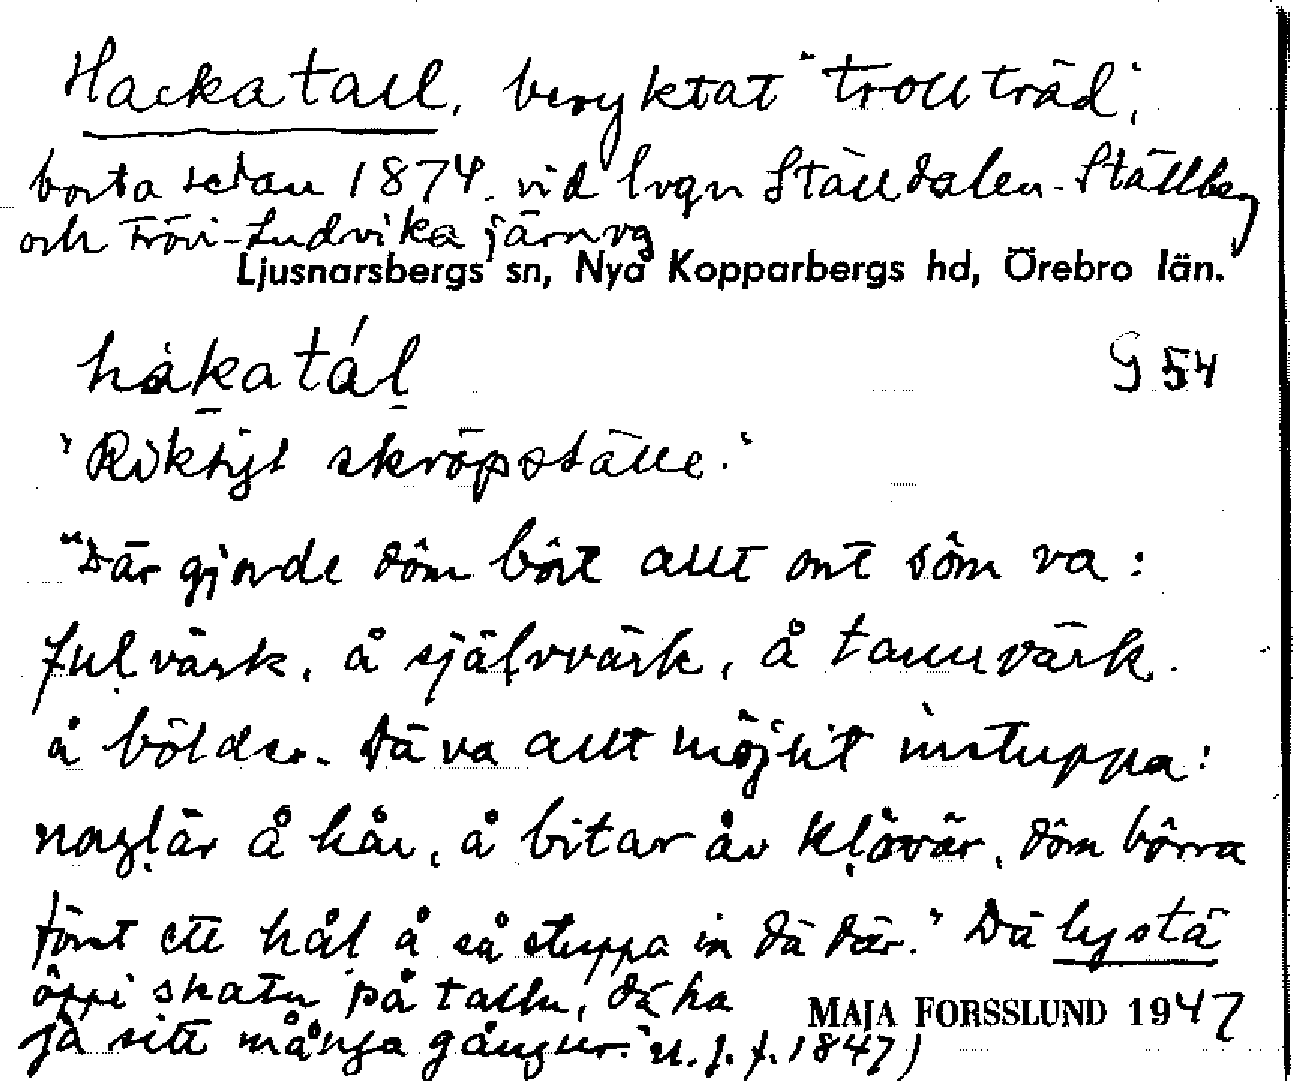 Hackatall, beryktat "trollträd",
borta sedan 1874. vid lvgn Ställdalen-Ställberg
och Frövi-Ludvika järnvg
Ljusnarsbergs sn, Nya Kopparbergs hd, Örebro län.
hàkatál
G 54
'Riktigt skröpställe.'
"Där gjorde dôm bôrt allt ont sôm va:
fulvärk, å självvärk, å tannvärk.
å bölder. Dä va allt möjlit instuppa:
naglär å hår, å bitar åv klôvär, dôm bôrra
fôrst ett hål å så stuppa in dä där." Dä lystä
ôppi skatn på talln, dä ha
ja sitt många gånger."
MAJA FORSSLUND 1947